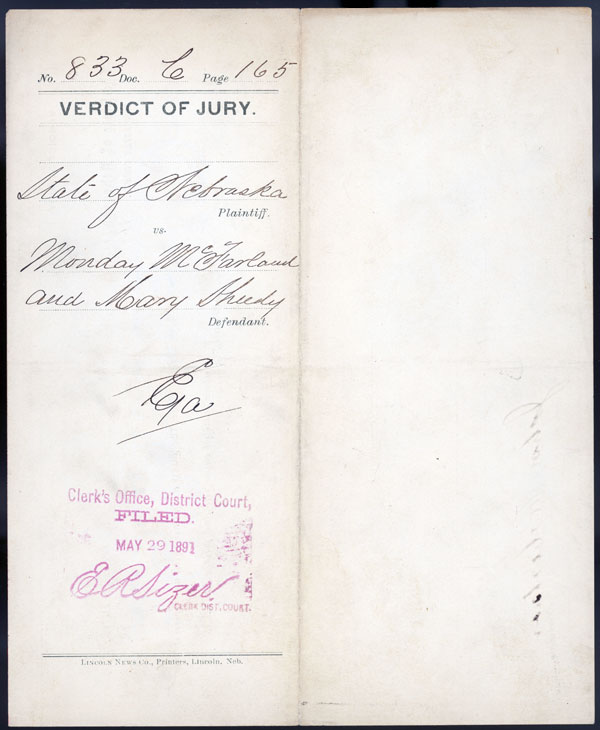 No. 833 Doc. C Page 165
VERDICT OF JURY.
State of Nebraska
Plaintiff.
vs.
Monday McFarland
and Mary Sheedy
Defendant.
Clerk's Office, District Court,
FILED.
MAY 29 1891
E R Sizer
CLERK DIST. COURT.
LINCOLN NEWS CO., Printers, Lincoln, Neb.